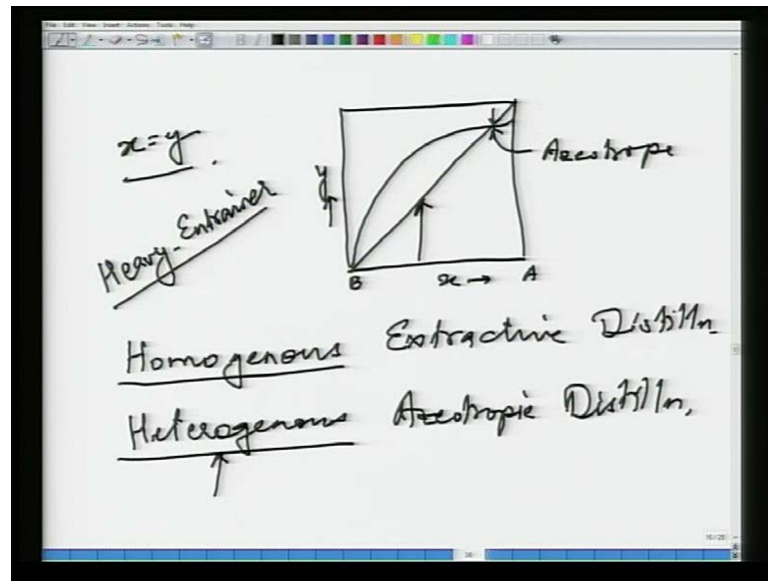 File Edit View Insert Actions Tools Help
x=y
Azeotrope
y
Heavy-Entrainer
B x → A
Homogenous Extractive Distilln.
Heterogenous Azeotropic Distilln.